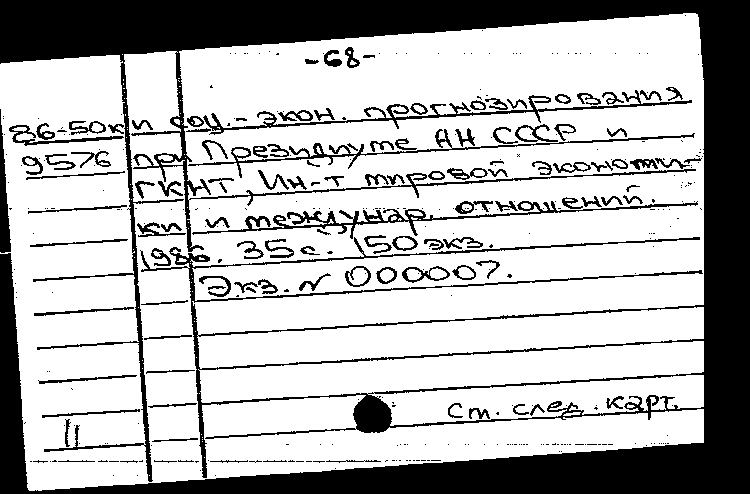 -68-
86-50к и соц.-экон. прогнозирования
9576 при Президиуме АН СССР и
ГКНТ, Ин-т мировой экономи-
ки и междунар. отношений.
1986. 35 с. 150 экз.
Экз. N 000007.
См. след. карт.
11